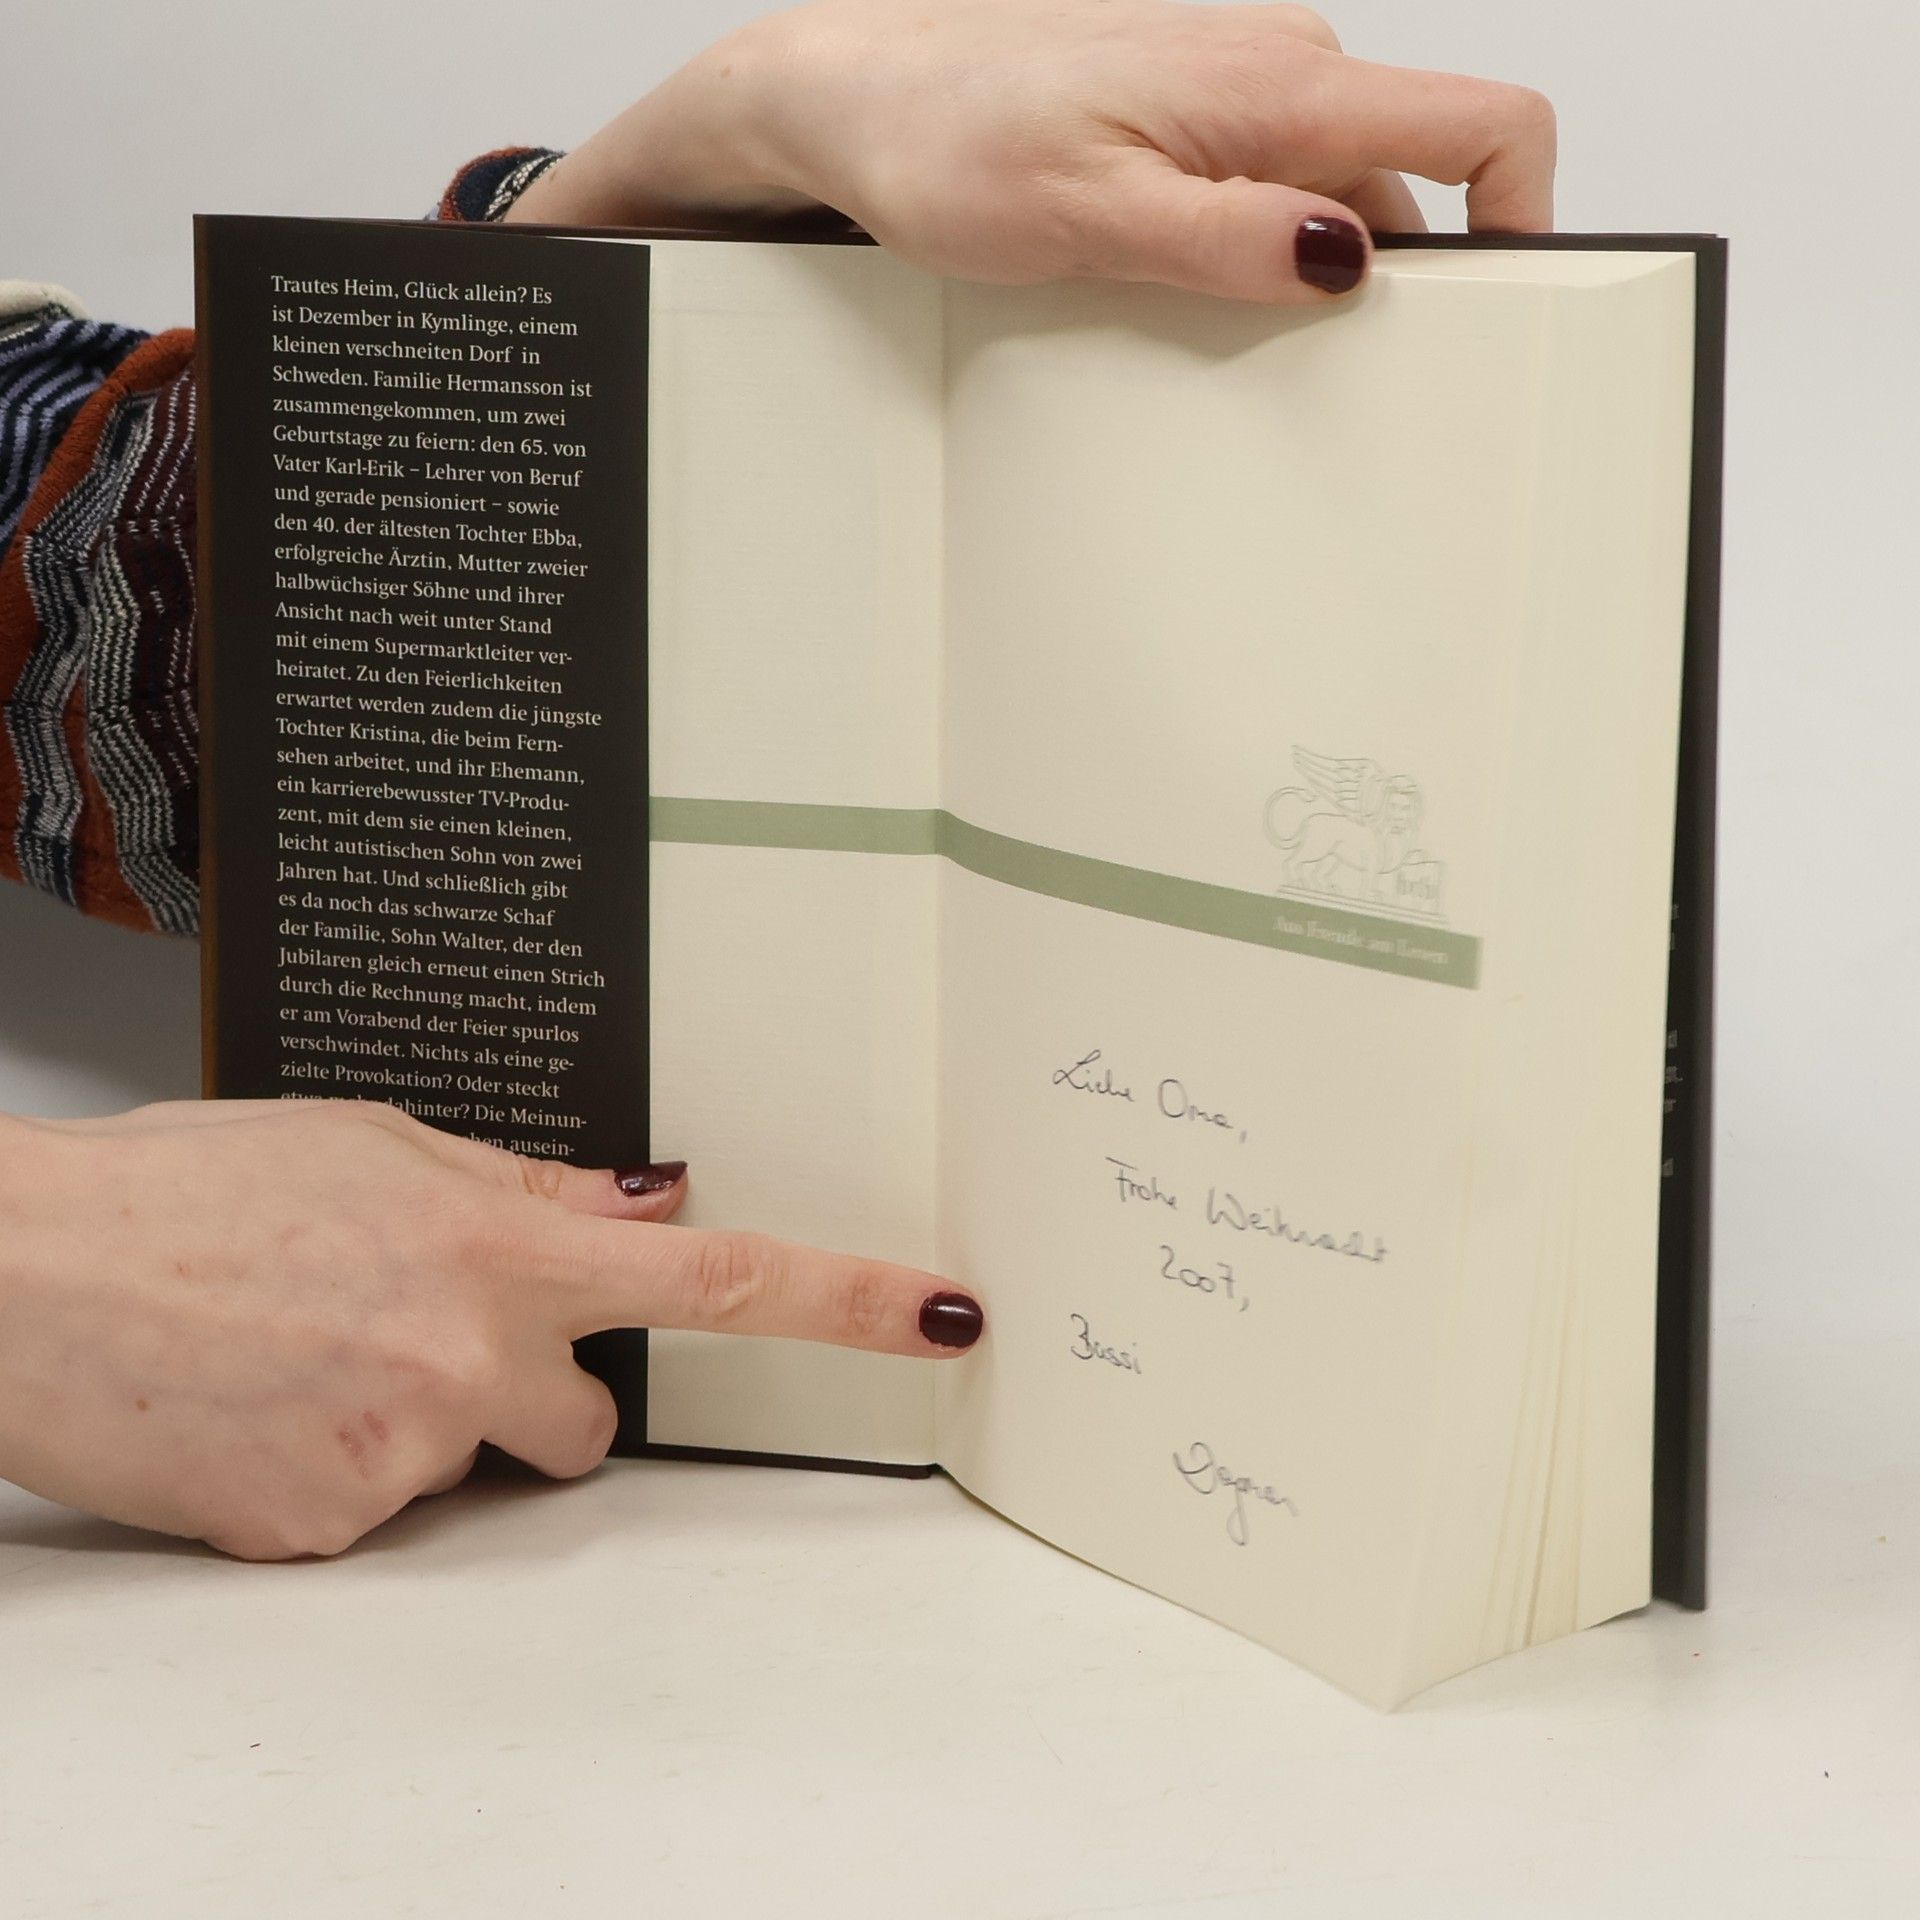 Trautes Heim, Glück allein? Es
ist Dezember in Kymlinge, einem
kleinen verschneiten Dorf in
Schweden. Familie Hermansson ist
zusammengekommen, um zwei
Geburtstage zu feiern: den 65. von
Vater Karl-Erik – Lehrer von Beruf
und gerade pensioniert – sowie
den 40. der ältesten Tochter Ebba,
erfolgreiche Ärztin, Mutter zweier
halbwüchsiger Söhne und ihrer
Ansicht nach weit unter Stand
mit einem Supermarktleiter ver-
heiratet. Zu den Feierlichkeiten
erwartet werden zudem die jüngste
Tochter Kristina, die beim Fern-
sehen arbeitet, und ihr Ehemann,
ein karrierebewusster TV-Produ-
zent, mit dem sie einen kleinen,
leicht autistischen Sohn von zwei
Jahren hat. Und schließlich gibt
es da noch das schwarze Schaf
der Familie, Sohn Walter, der den
Jubilaren gleich erneut einen Strich
durch die Rechnung macht, indem
er am Vorabend der Feier spurlos
verschwindet. Nichts als eine ge-
zielte Provokation? Oder steckt
dahinter? Die Meinun-
ausein-
btb
Aus Freude am Lesen
Liebe Oma,
Frohe Weihnacht
2007,
Bussi